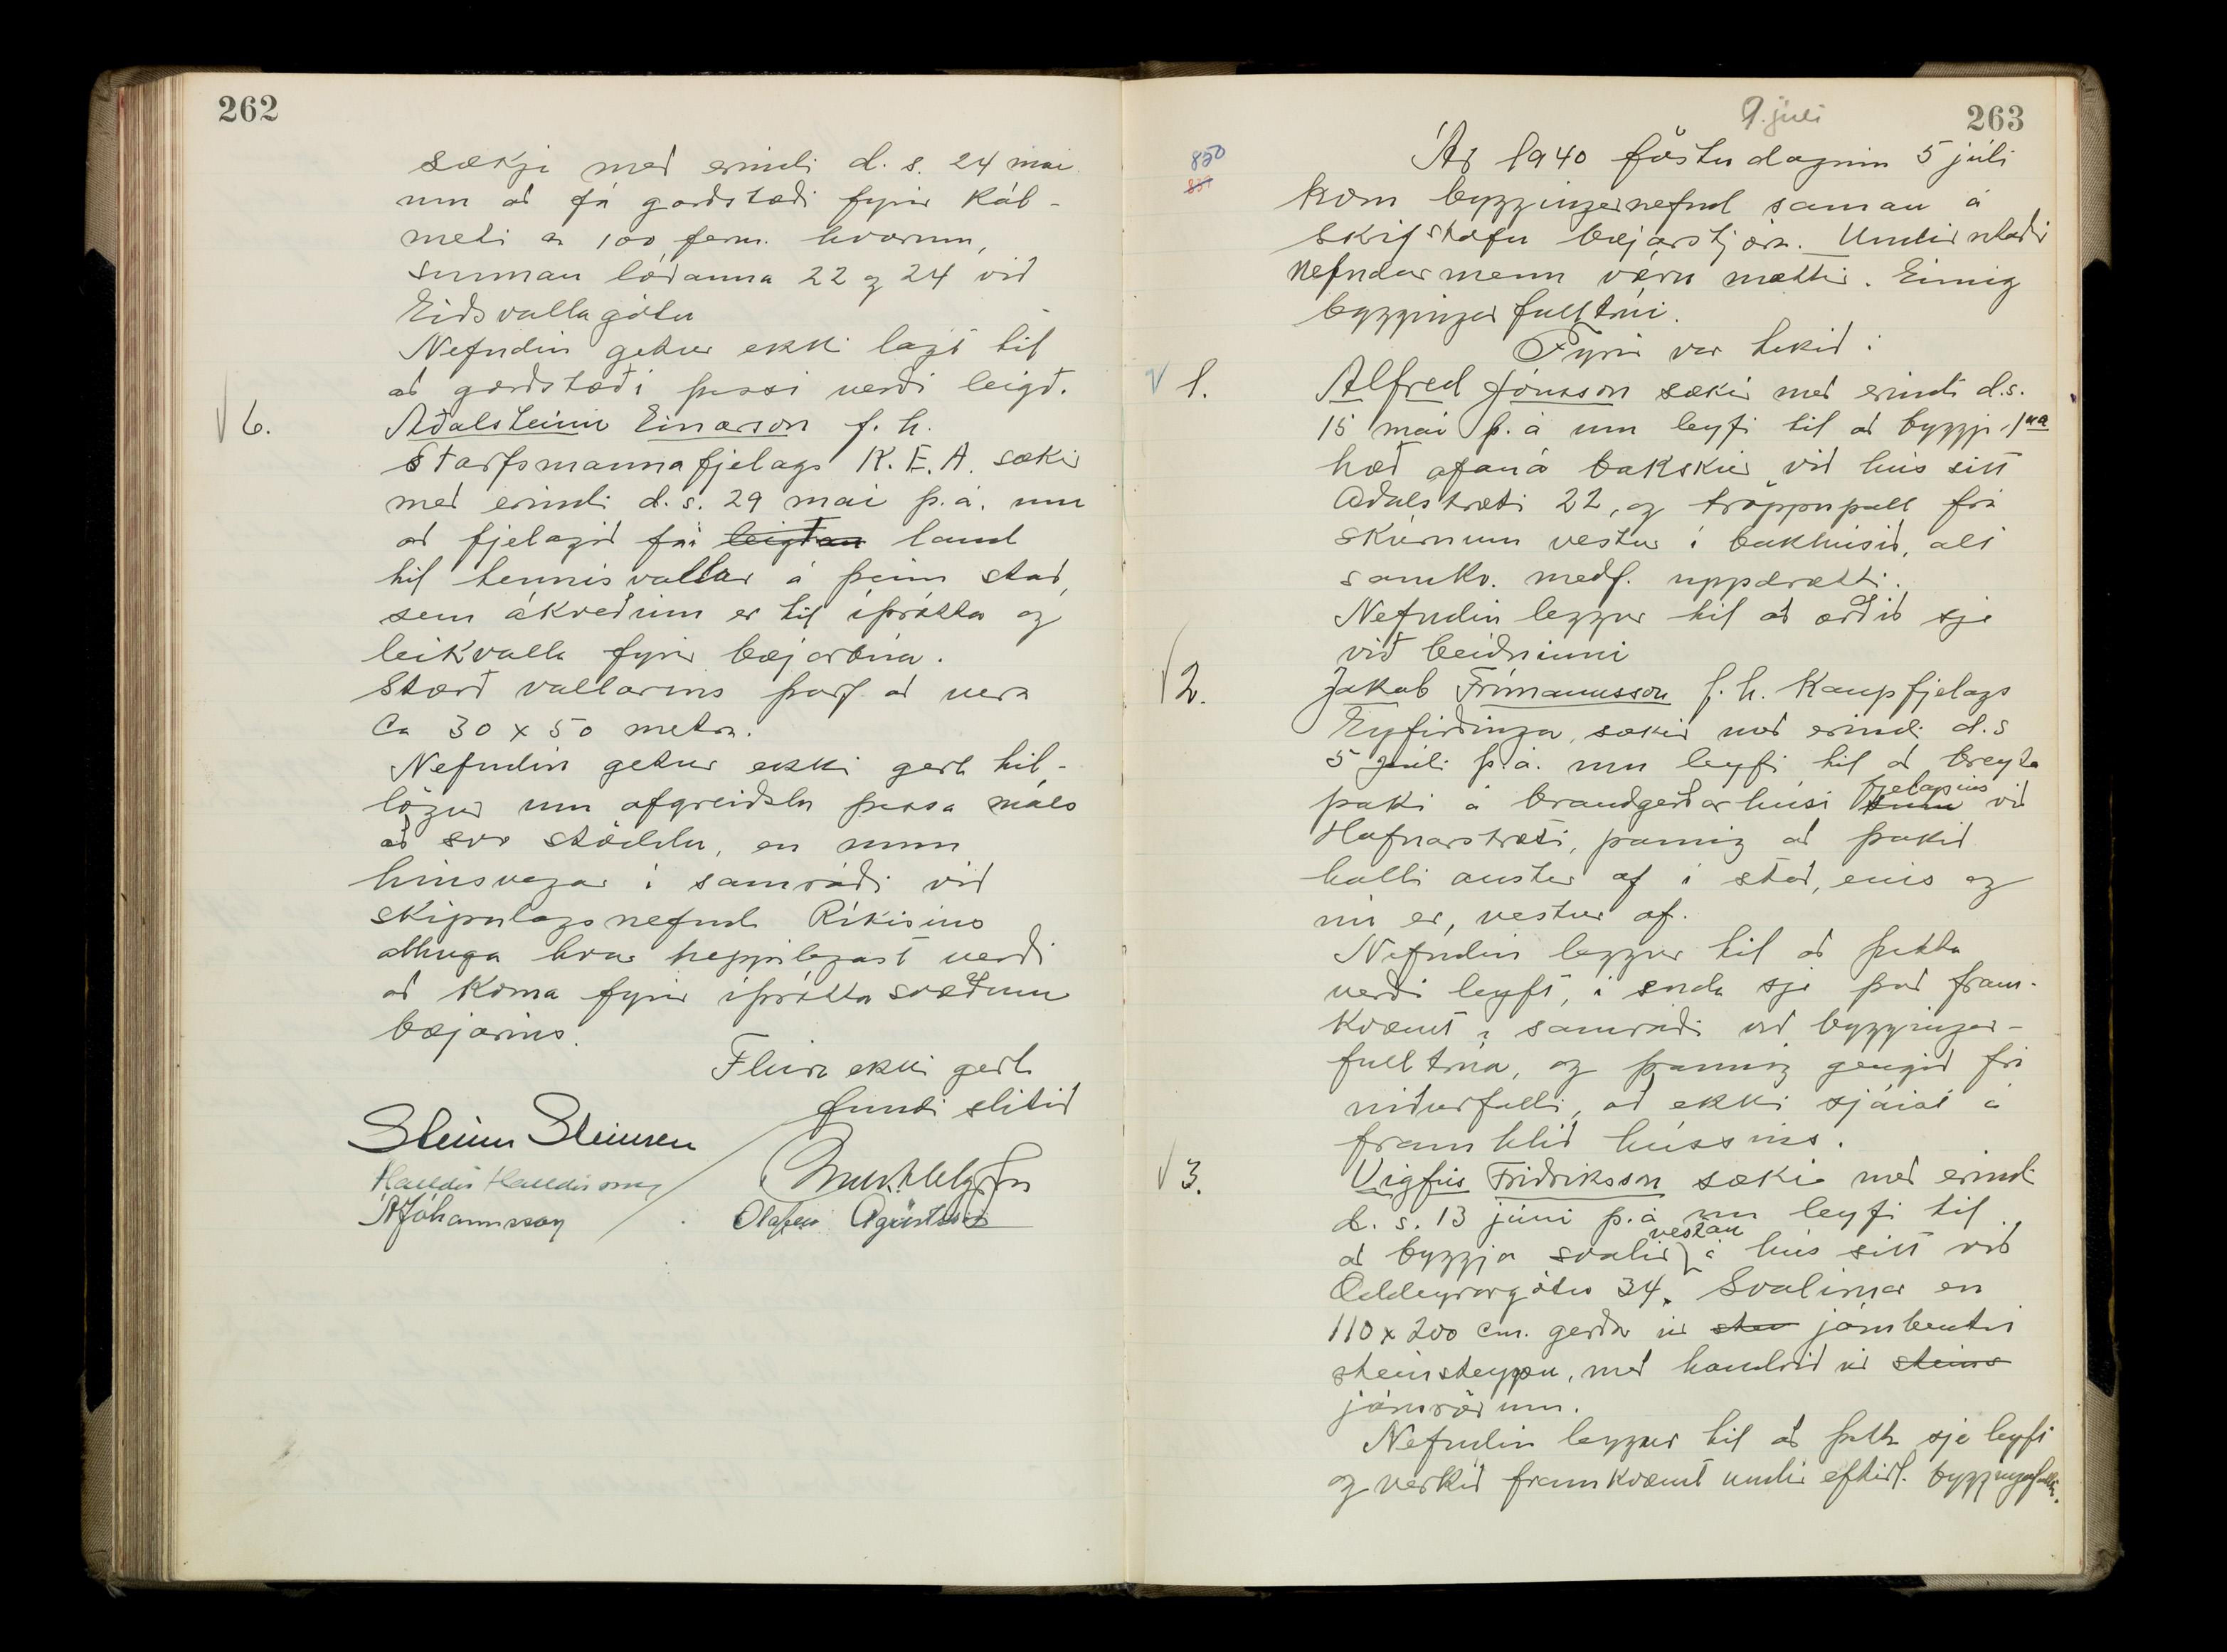 262
sækja með erindi d.s. 24 maí
um að fá garðstæði fyrir kál-
meti ca 100 ferm. hvorum,
sunnan lóðanna 22 og 24 við
Eiðsvallagötu
Nefndin getur ekki lagt til
að garðstæði þessi verði leigð.
6. Aðalsteinn Einarson f. h.
Starfsmannafjelags K.E.A. sækir
með erindi d.s. 29 maí þ.á. um
að fjelagið fái leigðan land
til tennisvallar á þeim stað,
sem ákveðinn er til íþrótta og
leikvalla fyrir bæjarbúa.
Stærð vallarins þarf að vera
Ca 30 x 50 metra.
Nefndin getur ekki gert til-
lögur um afgreiðslu þessa máls
að svo stöddu, en mun
hinsvegar í samráði við
skipulagsnefnd Ríkisins
athuga hvar heppilegast verði
að koma fyrir íþróttasvæðum
bæjarins.
Fleira ekki gert
fundi slitið
Steinn Steinsen
Halldór Halldórsson
Jóhannsson
Ólafur Ágústsson
263
9. júlí
850
Ár 1940 föstudaginn 5 júlí
kom byggingarnefnd saman á
skrifstofu bæjarstjóra. Undirritaðir
Nefndarmenn voru mættir. Einnig
byggingarfulltrúi.
Fyrir var tekið:
1. Alfred Jónsson sækir með erindi d.s.
15 maí þ.á um leyfi til að byggja 1na
hæð ofaná bakskúr við hús sitt
Aðalstræti 22, og tröppupall frá
skúrnum vestur í bakhúsið, alt
samkv. medf. uppdrætti.
Nefndin leggur til að orðið sje
við beiðninni
2. Jakob Frímannsson f.h. Kaupfjelags
Eyfirðinga, sækir með erindi d.s
5 júlí þ.á. um leyfi til að breyta
þaki á brauðgerðarhúsi sínu fjelagsins við
Hafnarstræti, þannig að þakið
halli austur af í stað, eins og
nú er, vestur af.
Nefndin leggur til að þetta
verði leyft, í enda sje það fram-
kvæmt í samráði við byggingar-
fulltrúa, og þannig gengið frá
niðurfalli, að ekki sjáist á
framhlið hússins.
3. Vigfús Friðriksson sækir með erindi
d.s. 13 júní þ.á um leyfi til
að byggja svalir vestan á hús sitt við
Oddeyrargötu 34. Svalirnar eru
110 x 200 cm. gerðar úr stei járnbentri
steinsteypu, með handrið úr steins
járnrörum.
Nefndin leggur til að þetta sje leyft
og verkið framkvæmt undir eftirl. byggingafulltr.